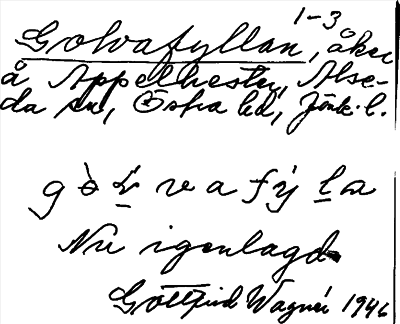 1-3
Golvafyllan, åker
å Appelhester, Alse-
da sn, Östra hd, Jönk. l.
Nu igenlagd
Gottfrid Wagnér 1946